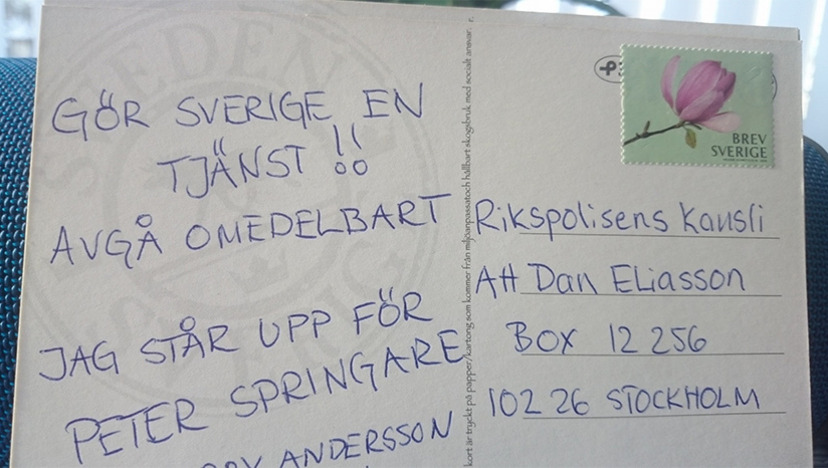 GÖR SVERIGE EN
TJÄNST !!
AVGÅ OMEDELBART
JAG STÅR UPP FÖR
PETER SPRINGARE
ANDERSSON
kort är tryckt på papper/kartong som kommer från miljöanpassat och hållbart skogsbruk med socialt ansvar.
BREV
SVERIGE
Rikspolisens Kansli
Att Dan Eliasson
BOX 12 256
102 26 STOCKHOLM